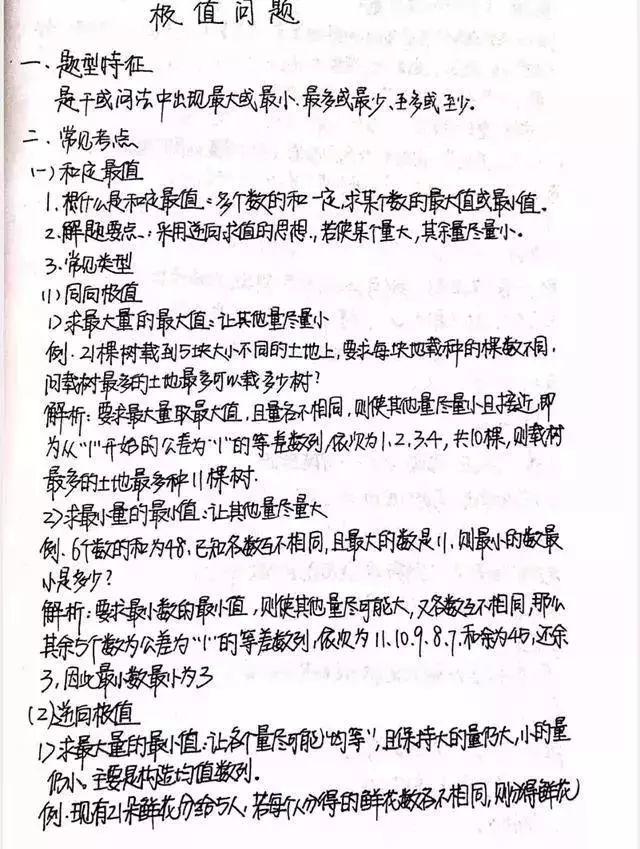 极值问题
一、题型特征
题干或问法中出现最大或最小、最多或最少、至多或至少。
二、常见考点
(一)和定最值
1.根什么是和定最值:多个数的和一定,求某个数的最大值或最小值。
2.解题要点:采用逆向求值的思想,若使某个量大,其余量尽量小。
3.常见类型
(1)同向极值
1>求最大量的最大值:让其他量尽量小
例.21棵树载到5块大小不同的土地上,要求每块地载种的棵数不同,
问载树最多的土地最多可以载多少树?
解析:要求最大量取最大值,且量各不相同,则使其他量尽量小且接近,即
为从"1"开始的公差为"1"的等差数列,依次为1、2、3、4,共10棵,则载树
最多的土地最多种11棵树.
2>求最小量的最小值:让其他量尽量大
例.6个数的和为48,已知各数互不相同,且最大的数是11,则最小的数最
小是多少?
解析:要求最小数的最小值,则使其他量尽可能大,又各数互不相同,那么
其余5个数为公差为"1"的等差数列,依次为11、10、9、8、7,和余为45,还余
3,因此最小数最小为3
(2)逆向极值
1>求最大量的最小值:让各个量尽可能"均等",且保持大的量仍大,小的量
仍小。主要是构造均值数列。
例.现有21朵鲜花分给5人,若每个人分得的鲜花数各不相同,则分得鲜花